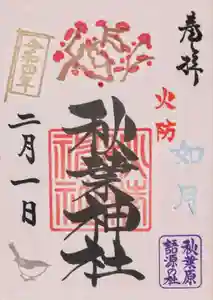 奉拝
火防
如月
秋葉原
語源の社
秋葉神社
令和四年
二月一日